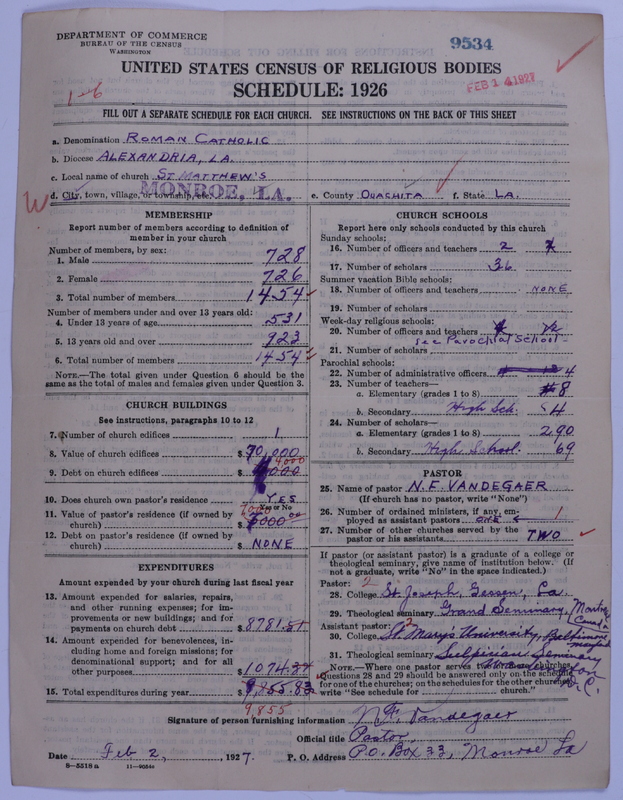 DEPARTMENT OF COMMERCE
BUREAU OF THE CENSUS
WASHINGTON
9534
UNITED STATES CENSUS OF RELIGIOUS BODIES
SCHEDULE: 1926
FEB 14 1927
1-6
FILL OUT A SEPARATE SCHEDULE FOR EACH CHURCH. SEE INSTRUCTIONS ON THE BACK OF THIS SHEET
a. Denomination ROMAN CATHOLIC
b. Diocese ALEXANDRIA, LA.
c. Local name of church ST MATTHEW'S
d. City, town, village, or township, etc. MONROE, LA. e. County OUACHITA f. State LA.
W
MEMBERSHIP
Report number of members according to definition of
member in your church
Number of members, by sex:
1. Male 728
2. Female 726
3. Total number of members 1454
Number of members under and over 13 years old:
4. Under 13 years of age 531
5. 13 years old and over 923
6. Total number of members 1454
NOTE.—The total given under Question 6 should be the
same as the total of males and females given under Question 3.
CHURCH BUILDINGS
See instructions, paragraphs 10 to 12
7. Number of church edifices 1
8. Value of church edifices $ 70,000
9. Debt on church edifices $ 4000
10. Does church own pastor's residence YES
Yes or No
11. Value of pastor's residence (if owned by
church) $ 7000
12. Debt on pastor's residence (if owned by
church) $ NONE
EXPENDITURES
Amount expended by your church during last fiscal year
13. Amount expended for salaries, repairs,
and other running expenses; for im-
provements or new buildings; and for
payments on church debt $ 8781.51
14. Amount expended for benevolences, in-
cluding home and foreign missions; for
denominational support; and for all
other purposes 1074.32
15. Total expenditures during year $ 9,855.83
9,855
CHURCH SCHOOLS
Report here only schools conducted by this church
Sunday schools:
16. Number of officers and teachers 2
17. Number of scholars 36
Summer vacation Bible schools:
18. Number of officers and teachers NONE
19. Number of scholars
Week-day religious schools:
20. Number of officers and teachers
See Parochial School
21. Number of scholars
Parochial schools:
22. Number of administrative officers 4
23. Number of teachers—
a. Elementary (grades 1 to 8) 8
b. Secondary High Sch. 4
24. Number of scholars—
a. Elementary (grades 1 to 8) 290
b. Secondary High School. 69
PASTOR
25. Name of pastor N. F. VANDEGAER
(If church has no pastor, write "None")
26. Number of ordained ministers, if any, em-
ployed as assistant pastors ONE 1
27. Number of other churches served by the
pastor or his assistants TWO
If pastor (or assistant pastor) is a graduate of a college or
theological seminary, give name of institution below. (If
not a graduate, write "No" in the space indicated.)
Pastor: 2
28. College St. Joseph, Gessen, La.
29. Theological seminary Grand Seminary, Montreal Canada
Assistant pastor: 2
30. College St. Marys University, Baltimore
31. Theological seminary Sulpician Seminary
Washington D.C.
NOTE.—Where one pastor serves two or more churches,
Questions 28 and 29 should be answered only on the schedule
for one of the churches; on the schedules for the other churches
write "See schedule for church."
Signature of person furnishing information N. F. Vandegaer
Official title Pastor
Date Feb 2, 1927. P. O. Address P.O. Box 33, Monroe La
8—5518 a 11—9084a